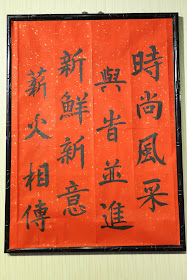 時尚風采
與旹並進
新鮮新意
薪火相傳